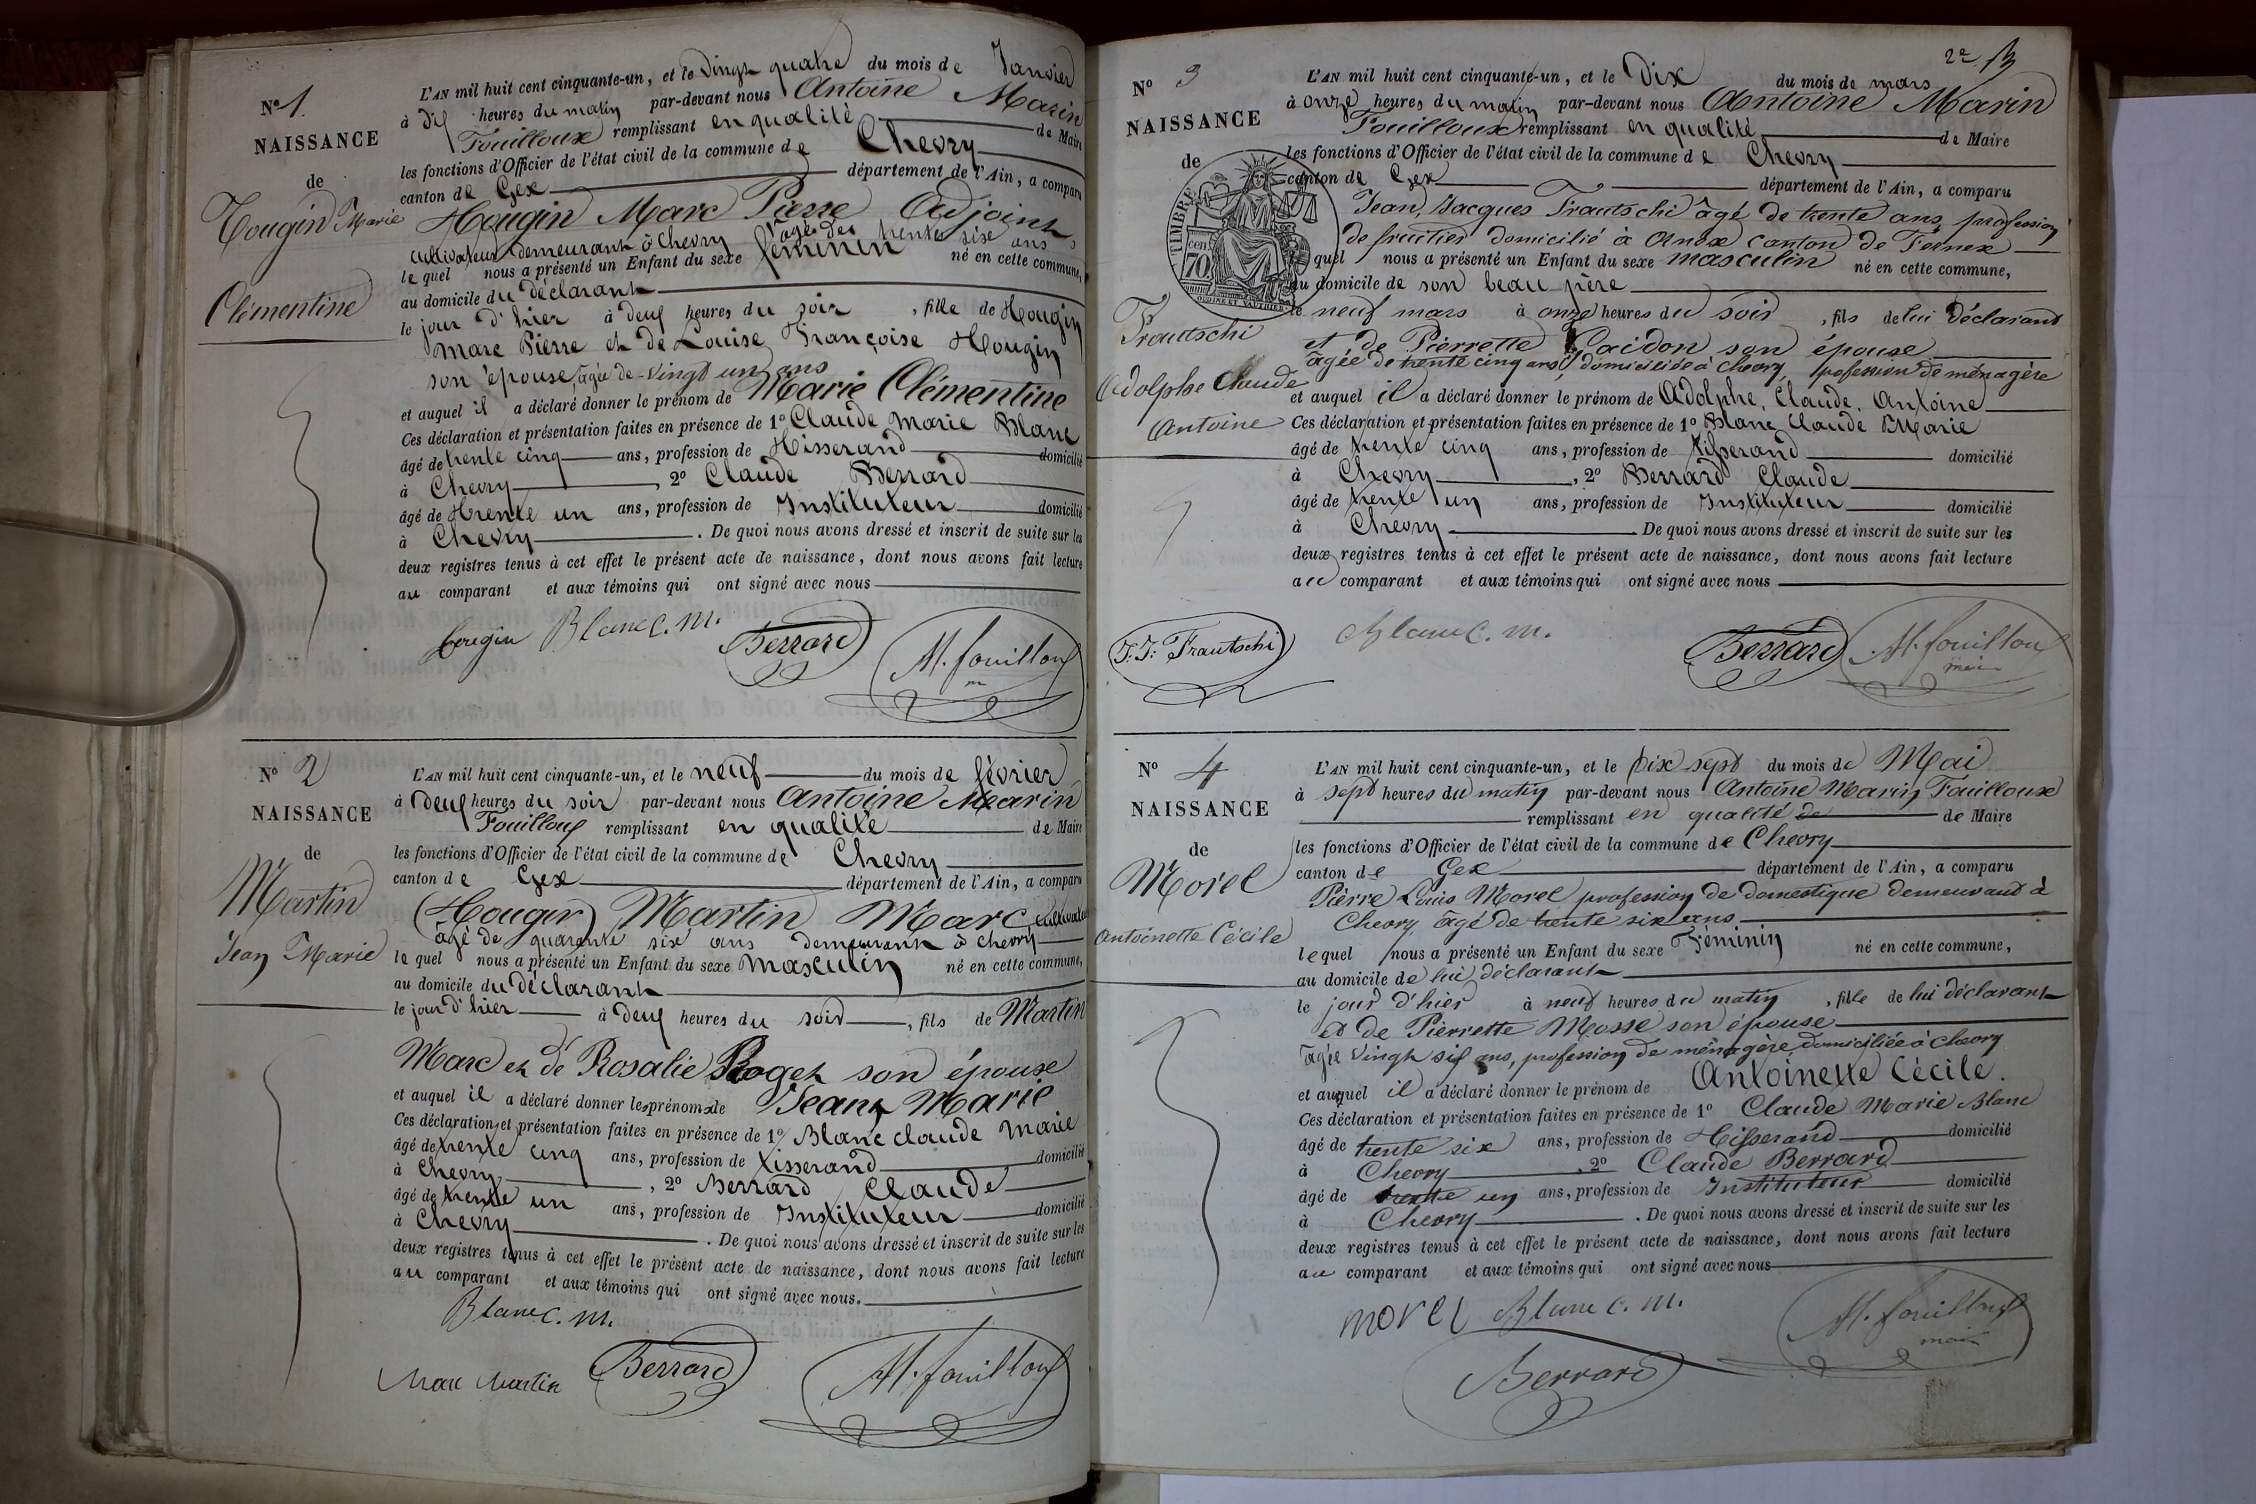 N° 1.
NAISSANCE
de
Hougin Marie
Clémentine
L'AN mil huit cent cinquante-un, et le vingt quatre du mois de Janvier
à dix heures du matin par-devant nous Antoine Marin
Fouilloux remplissant en qualité de Maire
les fonctions d'Officier de l'état civil de la commune de Chevry
canton de Gex département de l'Ain, a comparu
Hougin Marc Pierre Adjoint,
cultivateur demeurant à Chevry âgé de trente six ans
le quel nous a présenté un Enfant du sexe féminin né en cette commune,
au domicile du déclarant
le jour d'hier à deux heures du soir, fille de Hougin
Marc Pierre et de Louise Françoise Hougin
son épouse, âgée de vingt un ans
et auquel il a déclaré donner le prénom de Marie Clémentine
Ces déclaration et présentation faites en présence de 1° Claude Marie Blanc
âgé de trente cinq ans, profession de Tisserand domicilié
à Chevry, 2° Claude Berrard
âgé de trente un ans, profession de Instituteur domicilié
à Chevry. De quoi nous avons dressé et inscrit de suite sur les
deux registres tenus à cet effet le présent acte de naissance, dont nous avons fait lecture
au comparant et aux témoins qui ont signé avec nous
Hougin Blanc C. M. Berrard M. fouilloux
N° 2
NAISSANCE
de
Martin
Jean Marie
L'AN mil huit cent cinquante-un, et le neuf du mois de février
à deux heures du soir par-devant nous Antoine Marin
Fouilloux remplissant en qualité de Maire
les fonctions d'Officier de l'état civil de la commune de Chevry
canton de Gex département de l'Ain, a comparu
(Hougin) Martin Marc cultivateur
âgé de quarante six ans demeurant à Chevry
le quel nous a présenté un Enfant du sexe masculin né en cette commune,
au domicile du déclarant
le jour d'hier à deux heures du soir, fils de Martin
Marc et de Rosalie Roget son épouse
et auquel il a déclaré donner les prénoms de Jean Marie
Ces déclaration et présentation faites en présence de 1° Blanc Claude Marie
âgé de trente cinq ans, profession de tisserand domicilié
à Chevry, 2° Berrard Claude
âgé de trente un ans, profession de Instituteur domicilié
à Chevry. De quoi nous avons dressé et inscrit de suite sur les
deux registres tenus à cet effet le présent acte de naissance, dont nous avons fait lecture
au comparant et aux témoins qui ont signé avec nous.
Blanc C. M.
Marc Martin Berrard M. fouilloux
N° 3
NAISSANCE
de
TIMBRE
70 cen
Frautschi
Adolphe Claude
Antoine
L'AN mil huit cent cinquante-un, et le Dix du mois de mars
à onze heures du matin par-devant nous Antoine Marin
Fouilloux remplissant en qualité de Maire
les fonctions d'Officier de l'état civil de la commune de Chevry
canton de Gex département de l'Ain, a comparu
Jean, Jacques Frautschi âgé de trente ans, profession
de fruitier domicilié à Ornex canton de Fernex
quel nous a présenté un Enfant du sexe masculin né en cette commune,
au domicile de son beau père
le neuf mars à onze heures du soir, fils de lui déclarant
et de Pierrette Caidon son épouse
âgée de trente cinq ans, domiciliée à Chevry, profession de ménagère
et auquel il a déclaré donner le prénom de Adolphe, Claude, Antoine
Ces déclaration et présentation faites en présence de 1° Blanc Claude Marie
âgé de trente cinq ans, profession de Tisserand domicilié
à Chevry, 2° Berrard Claude
âgé de trente un ans, profession de Instituteur domicilié
à Chevry. De quoi nous avons dressé et inscrit de suite sur les
deux registres tenus à cet effet le présent acte de naissance, dont nous avons fait lecture
au comparant et aux témoins qui ont signé avec nous
J. J. Frautschi Blanc C. M. Berrard M. fouilloux
maire
N° 4
NAISSANCE
de
Morel
Antoinette Cécile
L'AN mil huit cent cinquante-un, et le Dix sept du mois de Mai
à sept heures du matin par-devant nous Antoine Marin Fouilloux
remplissant en qualité de de Maire
les fonctions d'Officier de l'état civil de la commune de Chevry
canton de Gex département de l'Ain, a comparu
Pierre Louis Morel profession de domestique demeurant à
Chevry âgé de trente six ans
lequel nous a présenté un Enfant du sexe Féminin né en cette commune,
au domicile de lui déclarant
le jour d'hier à neuf heures du matin, fille de lui déclarant
et de Pierrette Mosse son épouse
âgée vingt six ans, profession de ménagère domiciliée à Chevry
et auquel il a déclaré donner le prénom de Antoinette Cécile.
Ces déclaration et présentation faites en présence de 1° Claude Marie Blanc
âgé de trente six ans, profession de Tisserand domicilié
à Chevry, 2° Claude Berrard
âgé de trente un ans, profession de Instituteur domicilié
à Chevry. De quoi nous avons dressé et inscrit de suite sur les
deux registres tenus à cet effet le présent acte de naissance, dont nous avons fait lecture
au comparant et aux témoins qui ont signé avec nous
morel Blanc C. M. M. fouilloux
maire
Berrard